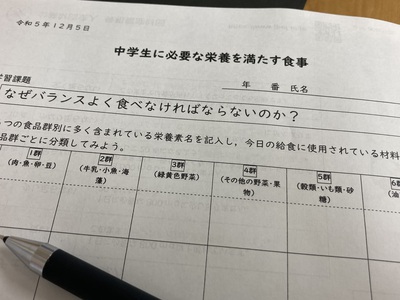 令和5年12月5日
中学生に必要な栄養を満たす食事
学習課題
年 番 氏名
なぜバランスよく食べなければならないのか?
つの食品群別に多く含まれている栄養素名を記入し、今日の給食に使用されている材料
品群ごとに分類してみよう。
1群 2群 3群 4群 5群 6群
(肉・魚・卵・豆) (牛乳・小魚・海藻) (緑黄色野菜) (その他の野菜・果物) (穀類・いも類・砂糖) (油